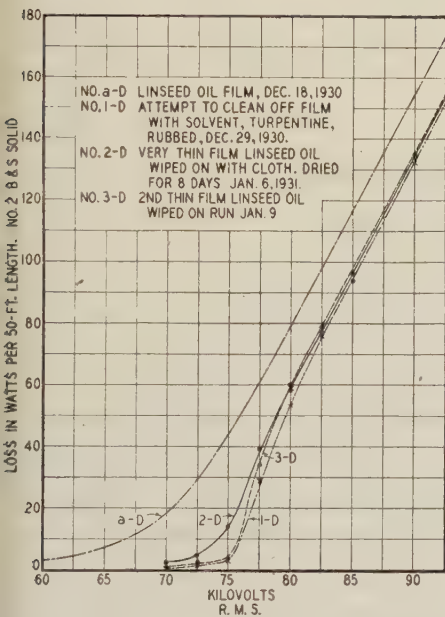 180
160
140
120
100
80
60
40
20
0
LOSS IN WATTS PER 50-FT. LENGTH. NO. 2 B & S SOLID
NO. a-D LINSEED OIL FILM, DEC. 18, 1930
NO. 1-D ATTEMPT TO CLEAN OFF FILM
WITH SOLVENT, TURPENTINE,
RUBBED, DEC. 29, 1930.
NO. 2-D VERY THIN FILM LINSEED OIL
WIPED ON WITH CLOTH. DRIED
FOR 8 DAYS JAN. 6, 1931.
NO. 3-D 2ND THIN FILM LINSEED OIL
WIPED ON RUN JAN. 9
a-D
2-D
1-D
3-D
60 65 70 75 80 85 90
KILOVOLTS
R. M. S.